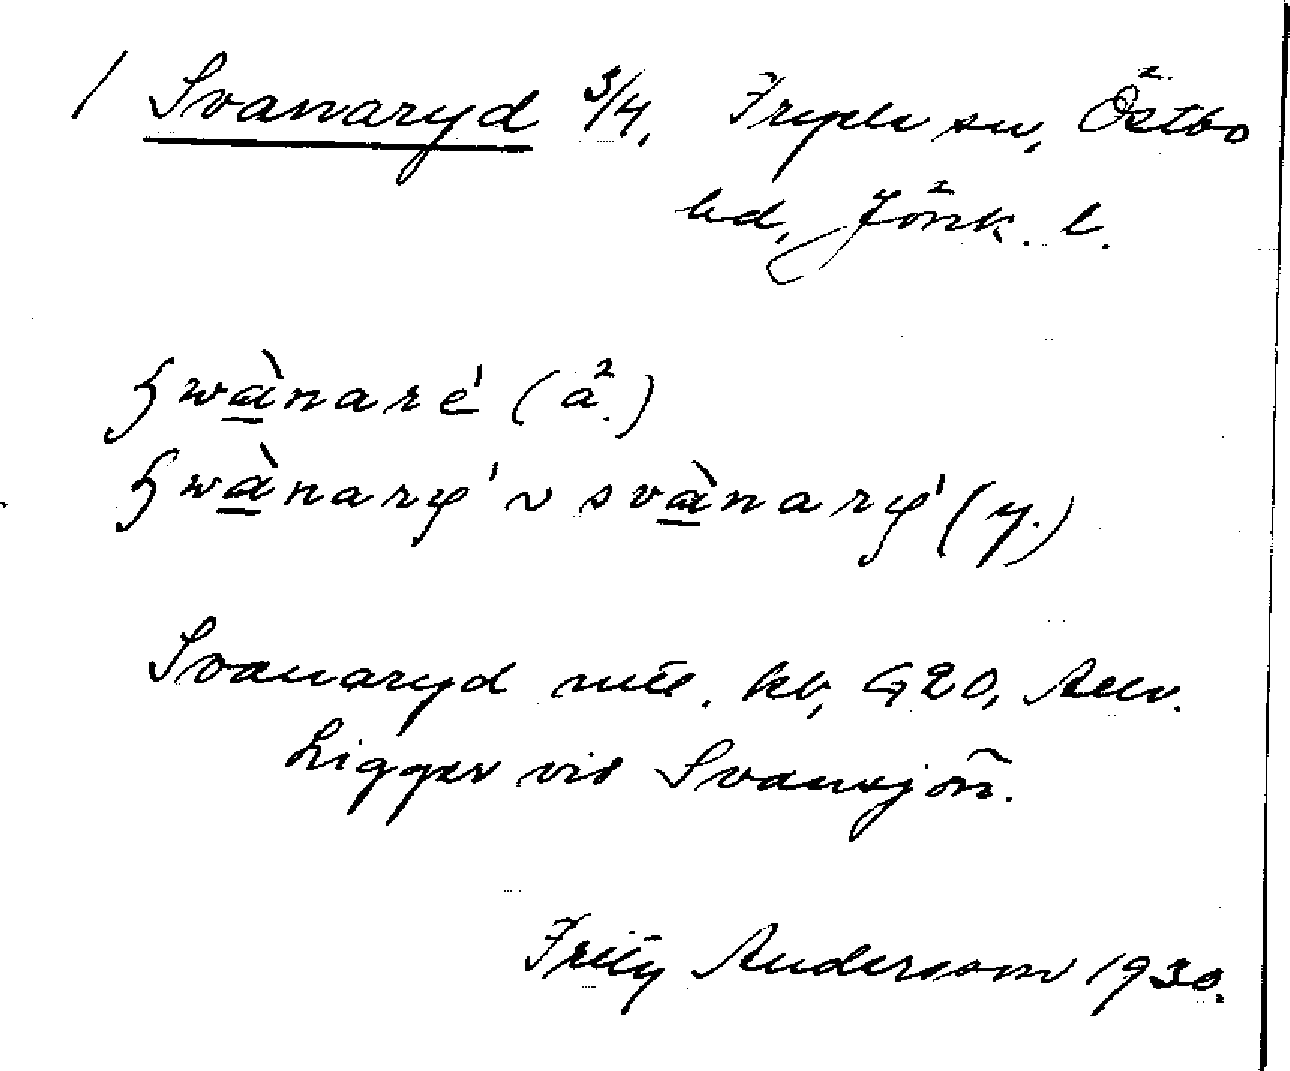 / Svanaryd 3/4, Fryele sn, Östbo
hd, Jönk. l.
swànaré (ä.)
swànarý ~ svànarý (y.)
Svanaryd mtl. kb, G20,
Ligger vid Svansjön.
Fritz Andersson 1930.